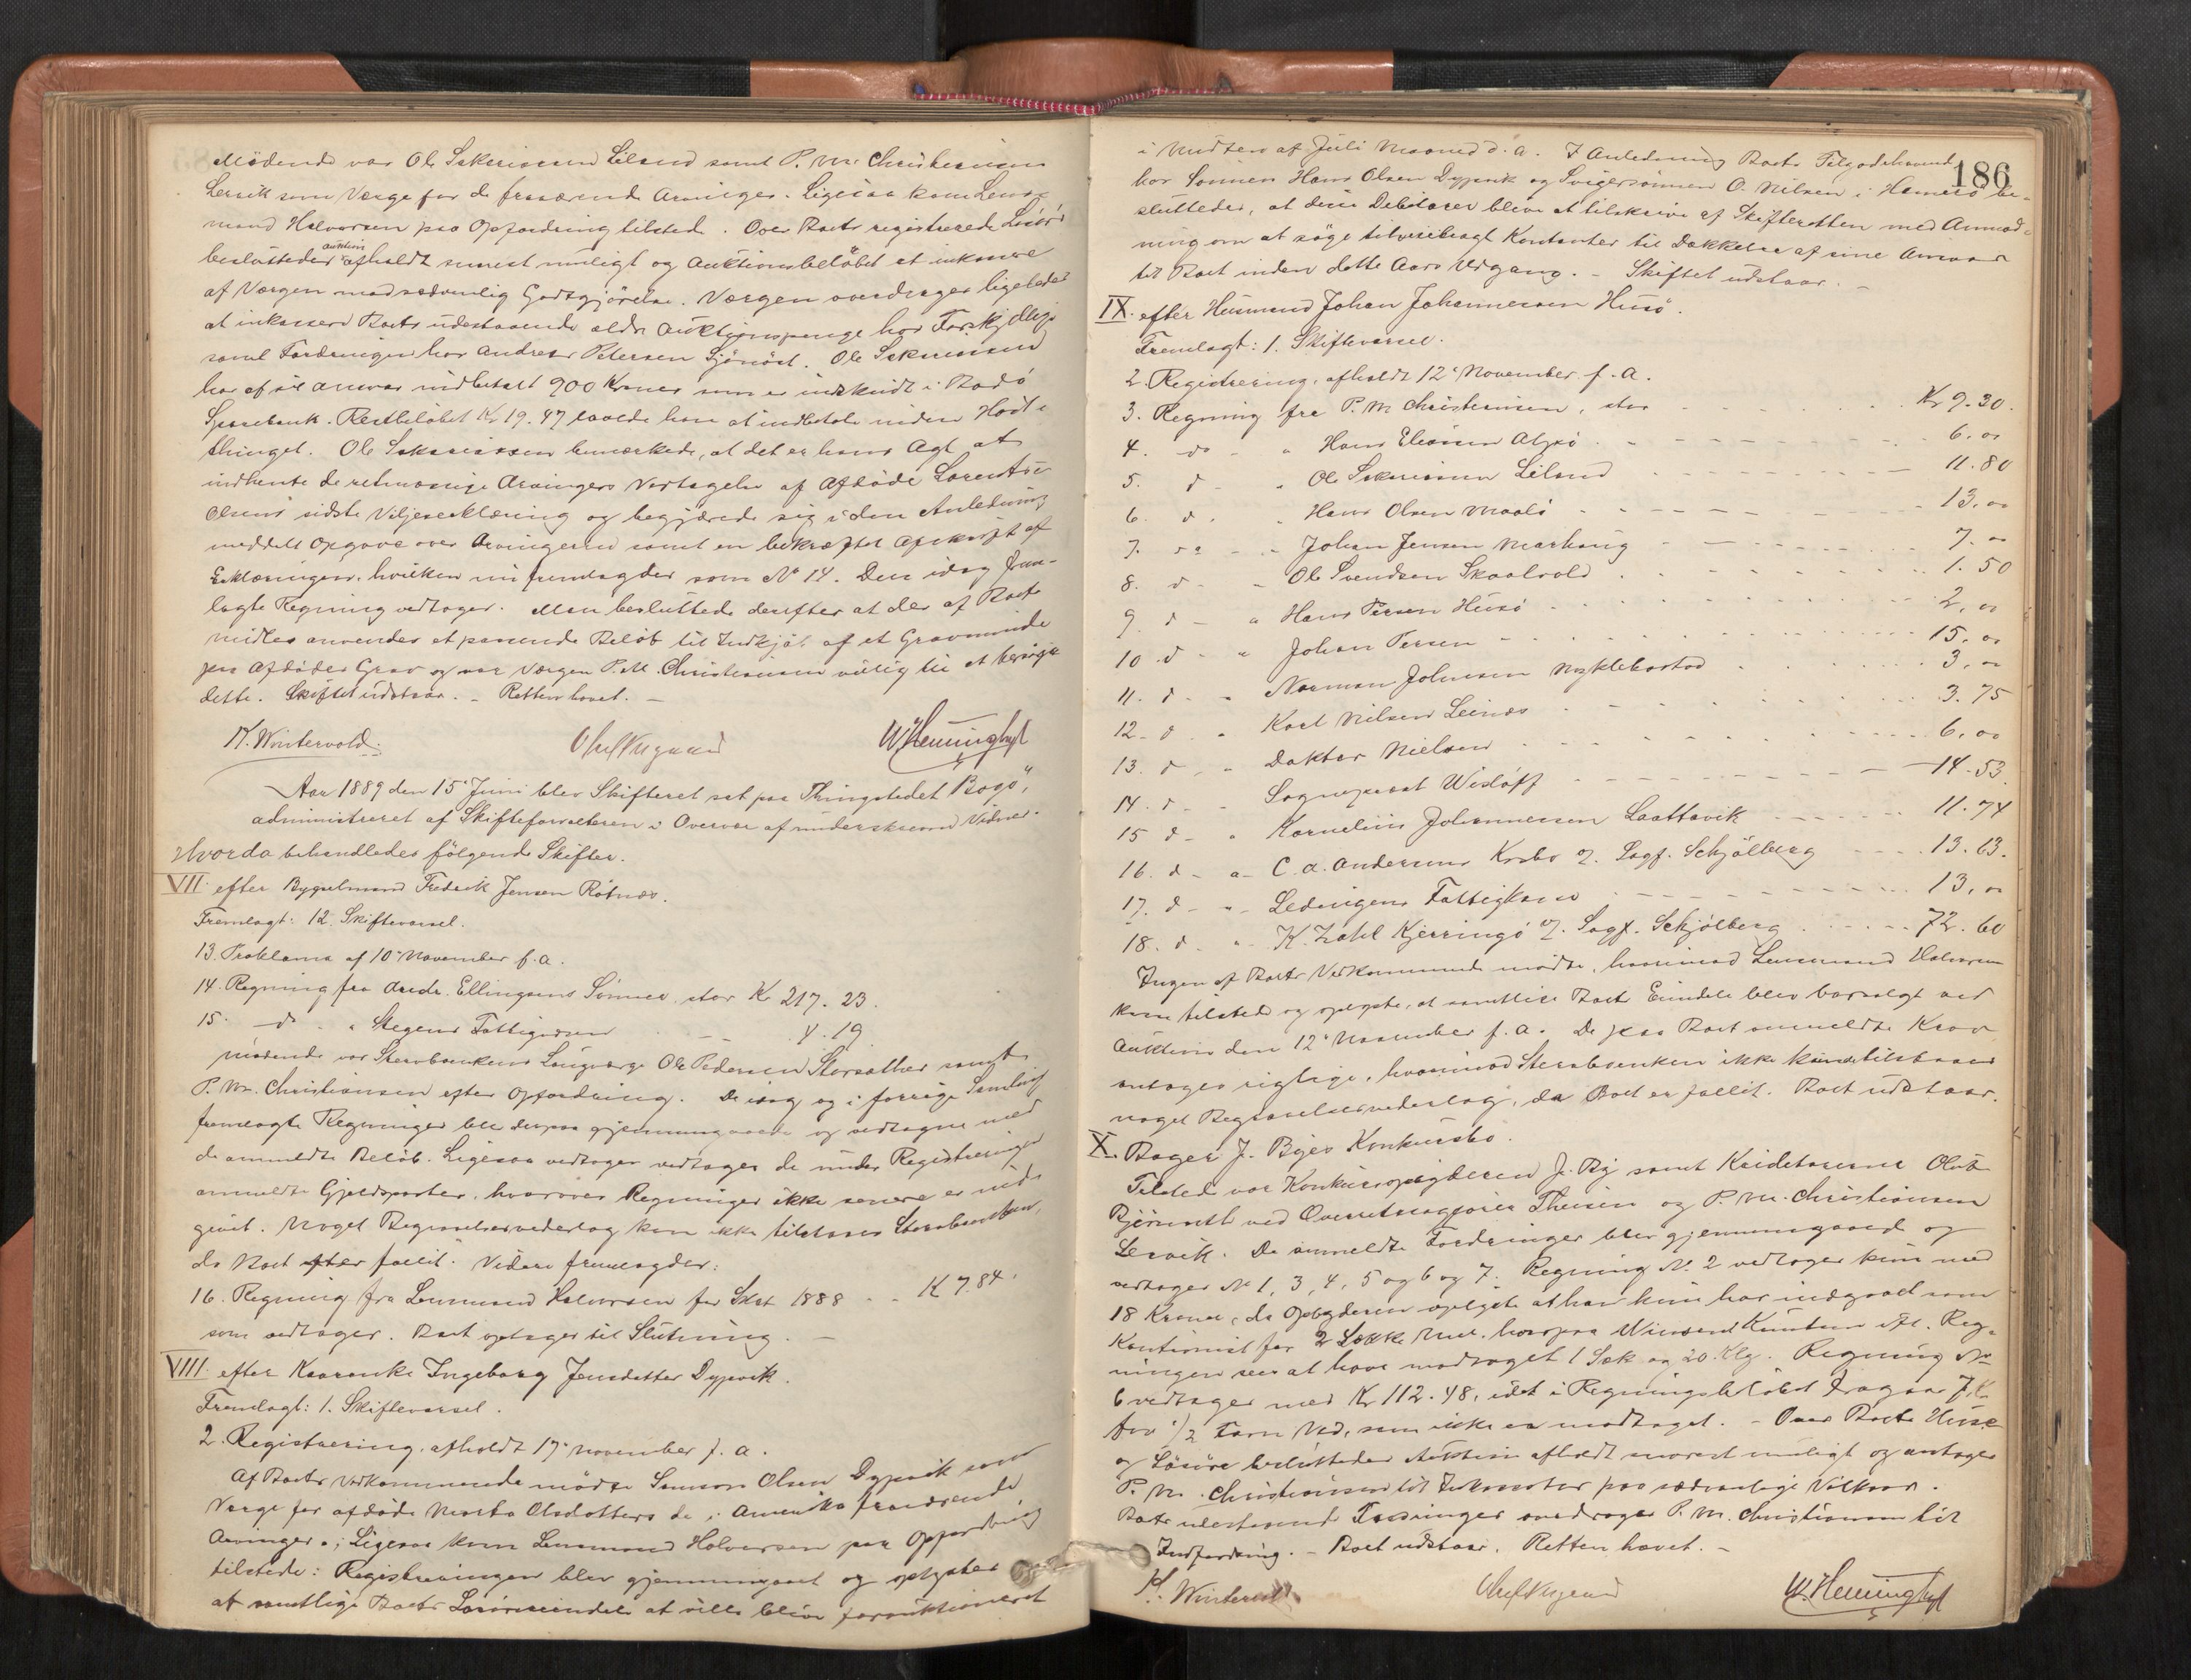 Mødende var Ole Sakariassen Leland samt P. M. Christiansen
Lervik som Værge for de fraværende Arvinger. Ligesaa kom Lens-
mand Halvorsen paa Opfordring tilstede. Over Boets registrerede Løsøre
besluttedes auktion afholdt snarest muligt og Auktionsbeløbet at inkassere
af Værgen mod sædvanlig Godtgjørelse. Værgen overdrages ligeledes
at inkassere Boets udestaaende ældre Auktionspenge hos Forskjellige
samt Fordringen hos Andreas Petersen Sjønøst. Ole Sakariassen
har af sit ansvar indbetalt 900 Kroner som er indskudt i Bodø
Sparebank. Restbeløbet Kr 19.47 lovede han at indbetale inden Høst-
thinget. Ole Sakariassen bemærkede, at det er hans Agt at
indhente de retmæssige Arvingers Vedtagelse af Afdøde Lorentse
Olsens sidste Viljeserklæring og begjærede sig i den Anledning
meddelt Opgave over Arvingerne samt en bekræftet Afskrift af
Erklæringen, hvilken nu fremlagdes som No 14. Den idag frem-
lagte Regning vedtages. Man besluttede derefter at der af Boets
midler anvendes et passende Beløb til Indkjøb af et Gravminde
paa Afdødes Grav og var Værgen P. M. Christiansen villig til at besørge
dette. Skiftet udstaar. – Retten hævet. –
K. Wintervold. W Hemingbyt
Aar 1889 den 15 Juni blev Skifteret sat paa Thingstedet Bogø,
administreret af Skifteforvalteren i Overvær af underskrevne Vidner.
Hvorda behandledes følgende Skifter.
VII. efter Bygselmand Fredrik Jensen Røtnæs.
Fremlagt: 12. Skiftevarsel.
13. Proklama af 10 November f. a.
14. Regning fra Andr. Ellingsens Sønner, stor Kr 217. 23.
15. do " Stegens Fattigvæsen – – 4. 19.
Mødende var Stervboenkens Laugværge Ole Pedersen Storsæther samt
P. M. Christiansen efter Opfordring. De idag og i forrige Samling
fremlagte Regninger blev derpaa gjennemgaaede og vedtagne med
de anmeldte Beløb. Ligesaa vedtages vedtages de under Registreringen
anmeldte Gjeldsposter, hvorover Regninger ikke senere er ind-
givet. Noget Begravelsesvederlag kan ikke tilstaaes Stervboenken,
da Boet er fallit. Videre fremlagdes:
16. Regning fra Lensmand Halvorsen for Skat 1888 – – Kr 7.84.
som vedtages. Boet optages til Slutning. –
VIII. efter Kaarenke Ingeborg Jensdatter Dypvik.
Fremlagt: 1. Skiftevarsel.
2. Registrering, afholdt 17 November f. a.
Af Boets Vedkommende mødte Samson Olsen Dypvik som
Værge for afdøde Marta Olsdatters de i Amerika fraværende
Arvinger; Ligesaa kom Lensmand Halvorsen paa Opfordring
tilstede: Registreringen blev gjennemgaaet og oplystes
at samtlige Boets Løsøreeiendele at ville blive forauktioneret
186
i Midten af Juli Maaned d. a. I Anledning Boets Tilgodehavende
hos Sønnen Hans Olsen Dypvik og Svigersønnen O. Nilsen i Hamerø be-
sluttedes, at disse Debitorer bleve at tilskrive af Skifteretten med Anmod-
ning om at søge tilveiebragt Kontanter til Dækkelse af sine Ansvar
til Boet inden dette Aars Udgang. – Skiftet udstaar. –
IX. efter Husmand Johan Johannessen Husø.
Fremlagt: 1. Skiftevarsel.
2. Registrering, afholdt 12 November f. a.
3. Regning fra P. M Christiansen, stor Kr 9.30.
4. do " Hans Eliassen 6.00
5. d – " Ole Sakariassen Leland 11.80
6. d. " Hans Olsen 13.00
7. do – " Johan Jensen Marhaug 7.00
8. d – " Ole Svendsen Skaalvold 1.50
9. d – " Hans Persen Husø 2.00
10. d – " Johan Persen 15.00
11. d – " Norman Johnsen Myklebostad 3.00
12. d " Karl Nilsen Leinæs 3.75
13. d – " Doktor Nielsen 6.00
14. d – Sogneprest Wisløff 14.53.
15 d – " Kornelius Johannessen Laattavik 11.74
16. d – " C. A. Andersens Krsbo v. Sagf. Schjølberg 13.63.
17. d – " Ledingens Fattigkasse 13.00
18. d. " K. Zahl Kjerringø v. Sagf. Schjølberg 72.60
Ingen af Boets Vedkommende mødte, hvorimod Lensmand Halvorsen
kom tilstede og oplyste, at samtlige Boets Eiendele blev bortsolgt ved
Auktion den 12 November f. a. De paa Boet anmeldte Krav
antages rigtige, hvorimod Stervboenken ikke kunde tilstaaes
noget Begravelsesvederlag, da Boet er fallit. Boet udstaar.
X. Bager J. Byes Konkursbo.
Tilsted var Konkursopbyderen J. By samt Kreditorerne Oluf
ved Overretssagfører Theisen og P. M. Christiansen
Lervik. De anmeldte Fordringer blev gjennemgaaed og
vedtages No 1, 3, 4, 5 og 6 og 7. Regning No 2 vedtages kun med
18 Kroner, da Opbyderen oplyste at han kun har indgaaet som
Kautionist for 2 Sække Mel, hvorpaa Winsend Knutsen Regningen
sees at have modtaget 1 Sæk og 20 Klg. Regning No
6 vedtages med Kr 112.48, idet i Regningsbeløbet fragaar 7 Kr
for 1/2 Favn Ved, som ikke er modtaget. – Over Boets Huse
og Løsøre besluttedes Auktion afholdt snarest muligt og antages
P. M. Christiansen til Inkassator paa sædvanlige Vilkaar.
Boets udestaaende Fordringer overdrages P. M. Christiansen til
Indfordring. – Boet udstaar. Retten hævet. –
K. Wintervold W. Hemingbyt